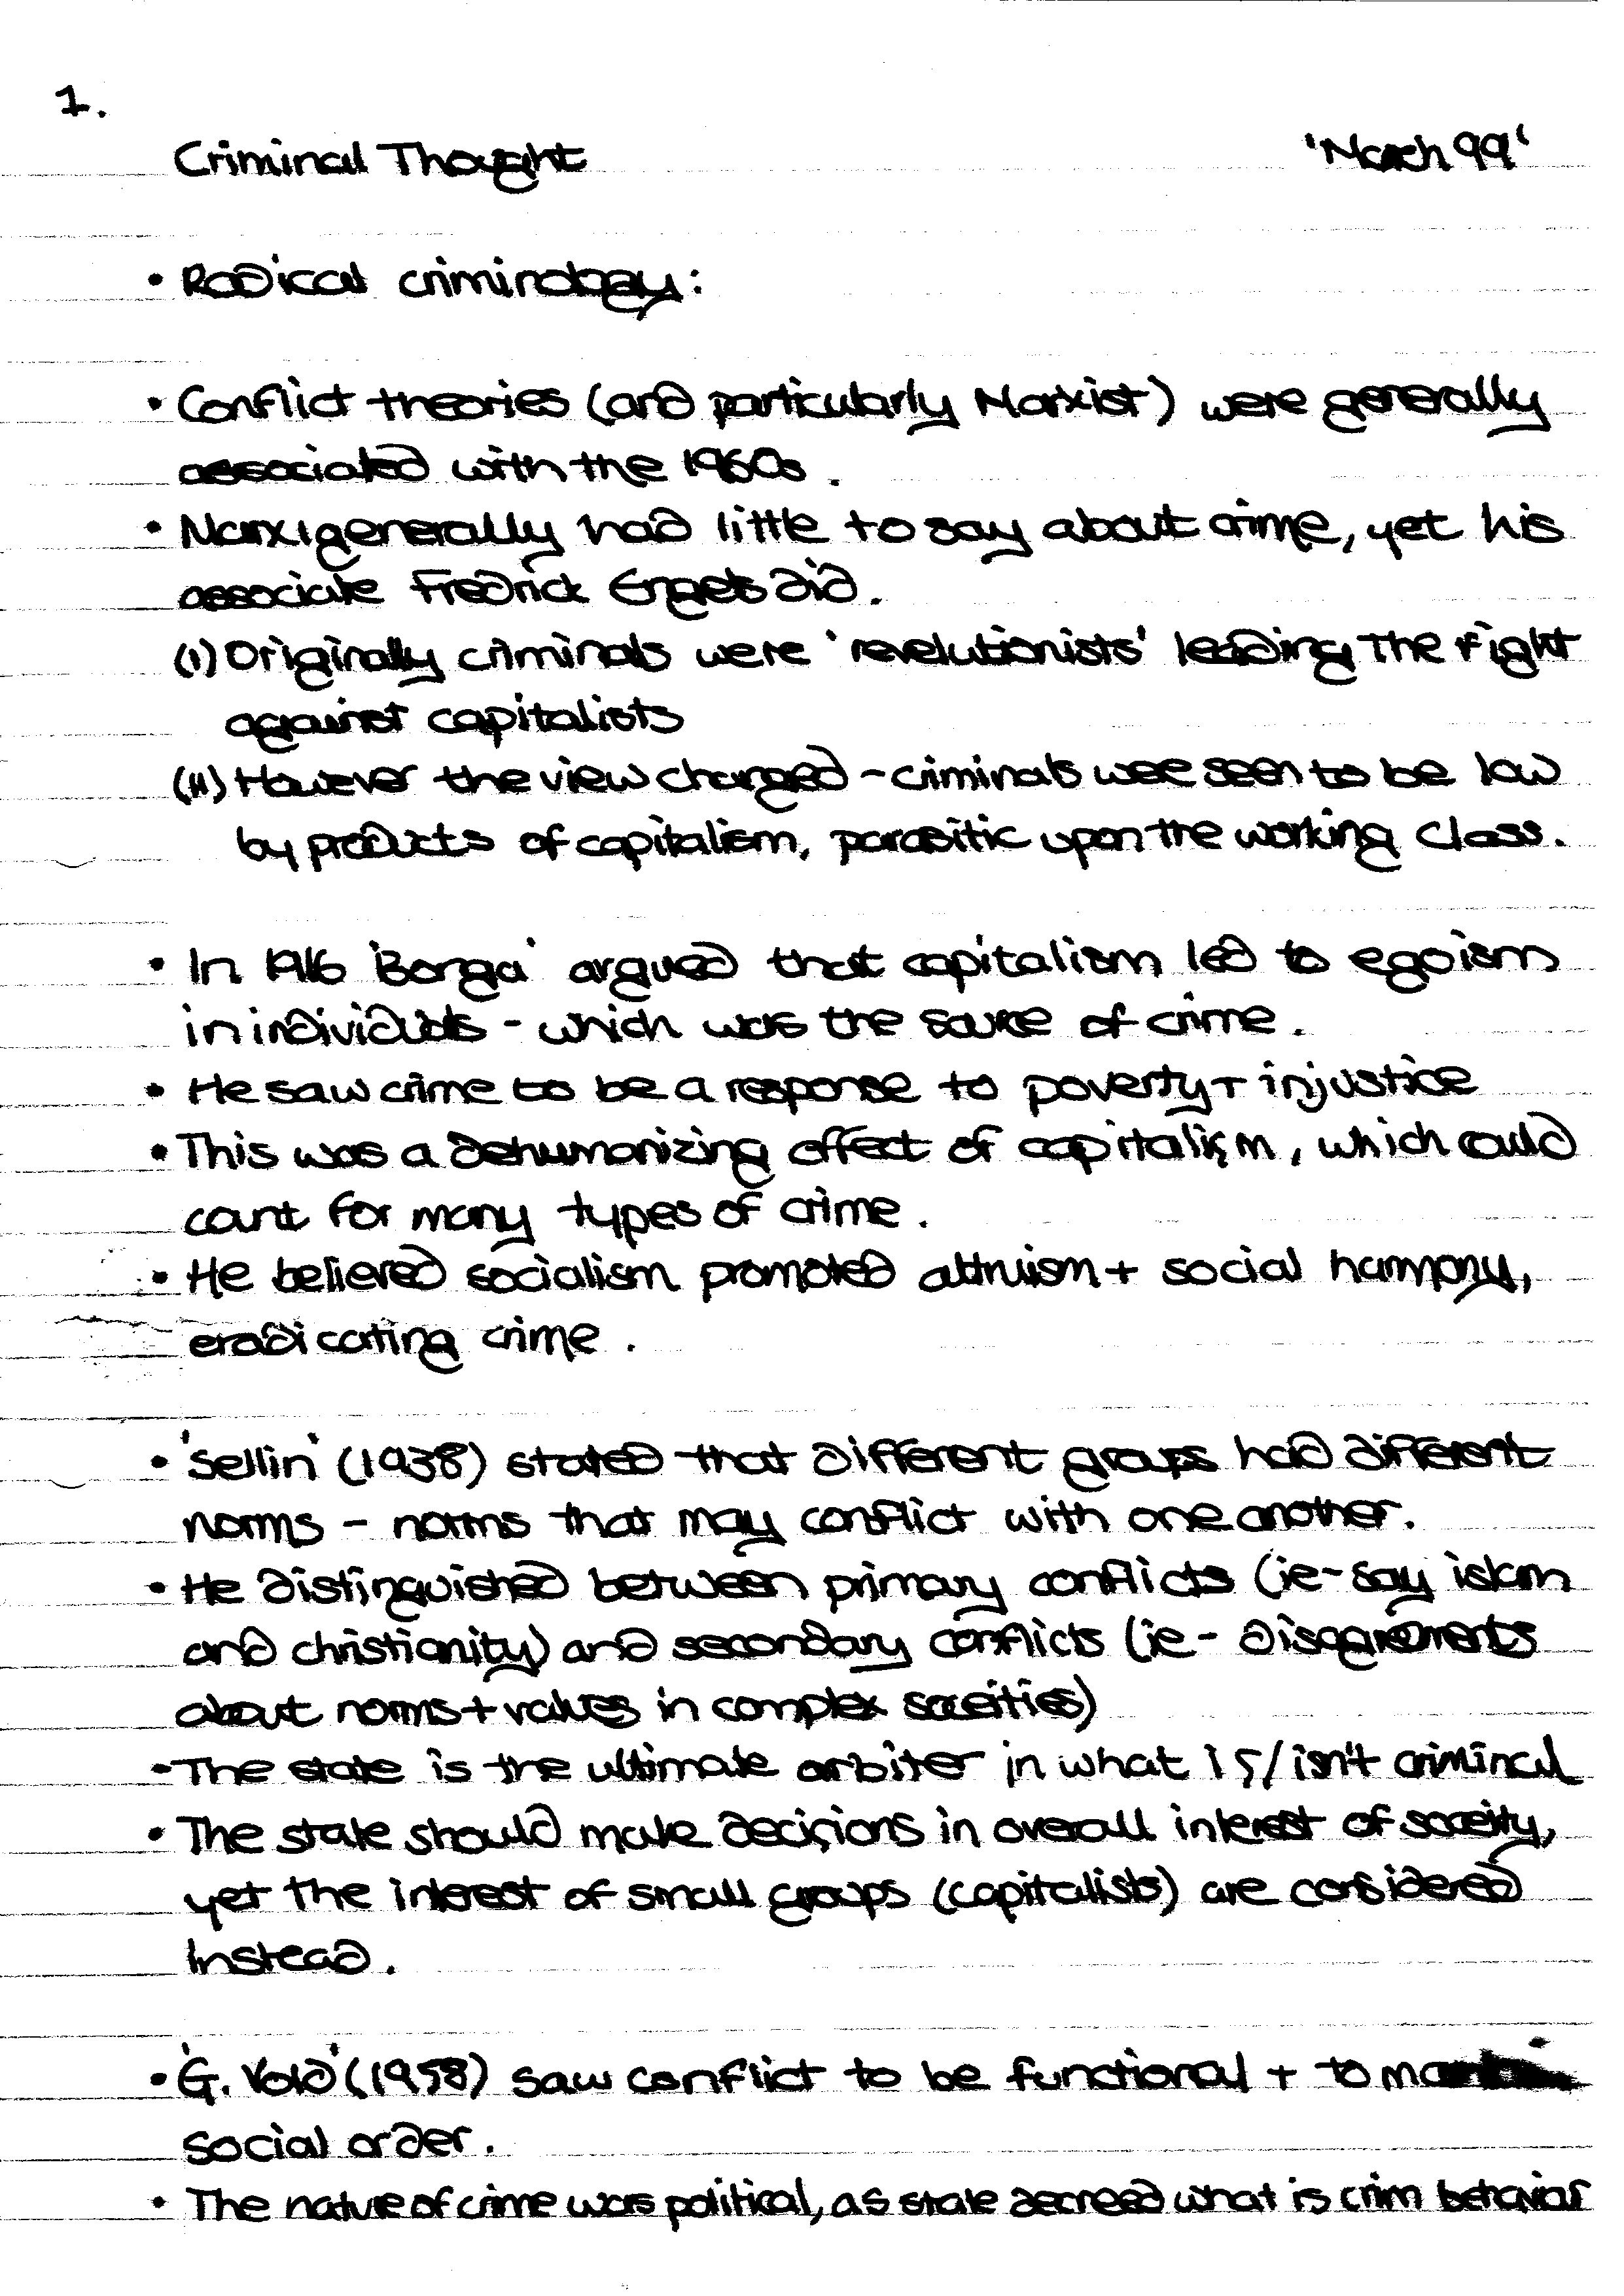 1.
Criminal Thought 'March 99'
• Radical criminology:
• Conflict theories (and particularly Marxist) were generally
associated with the 1960s.
• Marx generally had little to say about crime, yet his
associate Fredrick Engels did.
(i) Originally criminals were 'revelutionists' leading the fight
against capitalists
(ii) However the view changed - criminals were seen to be low
by products of capitalism, parasitic upon the working class.
• In 1916 'Bonga' argued that capitalism led to egoism
in individuals - which was the source of crime.
• He saw crime to be a response to poverty + injustice
• This was a dehumanizing effect of capitalism, which could
count for many types of crime.
• He believed socialism promoted altruism + social harmony,
eradicating crime.
• 'Sellin' (1938) stated that different groups had different
norms - norms that may conflict with one another.
• He distinguished between primary conflicts (ie - say islam
and christianity) and secondary conflicts (ie - disagreements
about norms + values in complex soceities)
• The state is the ultimate arbiter in what is/isn't criminal
• The state should make decisions in overall interest of soceity,
yet the interest of small groups (capitalists) are considered
instead.
• 'G. Vold' (1958) saw conflict to be functional + to
social order.
• The nature of crime was political, as state decreed what is crim behaviar